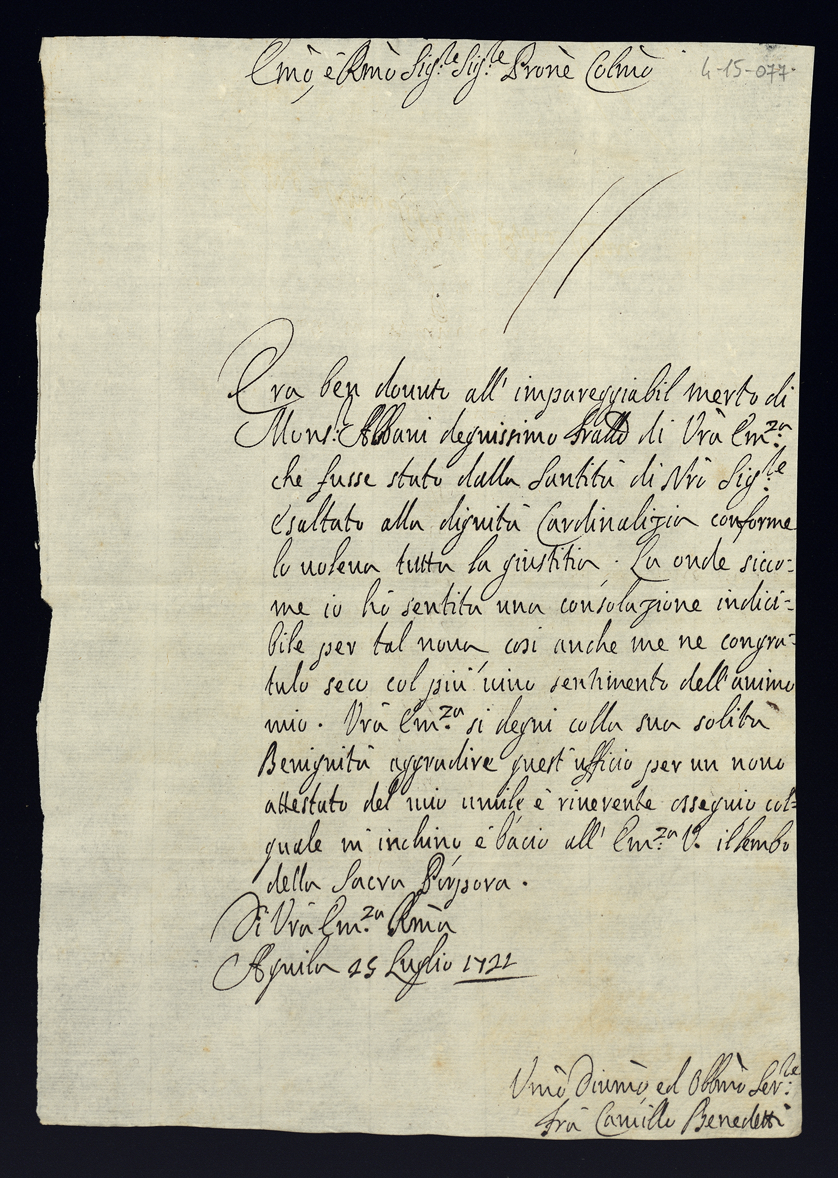 Emo, é Rmo Sig.re Sig.re Prone Colmo
4-15-077.
Era ben douuto all' impareggiabil merto di
Mons.r Albani degnissimo fratello di Vra Em.za
che fusse stato dalla Santità di Nro Sig.re
esaltato alla dignità Cardinalizia conforme
lo uoleua tutta la giustitia. La onde sicco=
me io hó sentita una consolazione indici=
bile per tal noua cosi anche me ne congra=
tulo seco col piú uiuo sentimento dell'animo
mio. Vra Em.za si degni colla sua solita
Benignità aggradire quest'ufficio per un nouo
attestato del mio umile é riuerente ossequio col=
quale m' inchino é bacio all' Em.za V. il lembo
della Sacra Porpora.
Di Vra Em.za Rma
Aquila 25 Luglio 1721
Vmo Diumo ed Obbmo Ser.re
Frà Camillo Benedetti